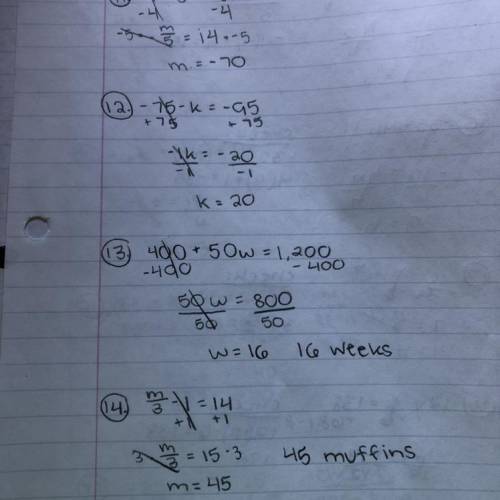 -4 -4
-5 · m/5 = 14 · -5
m = -70
12. -75 - k = -95
+75 +75
-1k/-1 = -20/-1
k = 20
13. 400 + 50w = 1,200
-400 -400
50w/50 = 800/50
w = 16 16 weeks
14. m/3 - 1 = 14
+1 +1
3 · m/3 = 15 · 3 45 muffins
m = 45